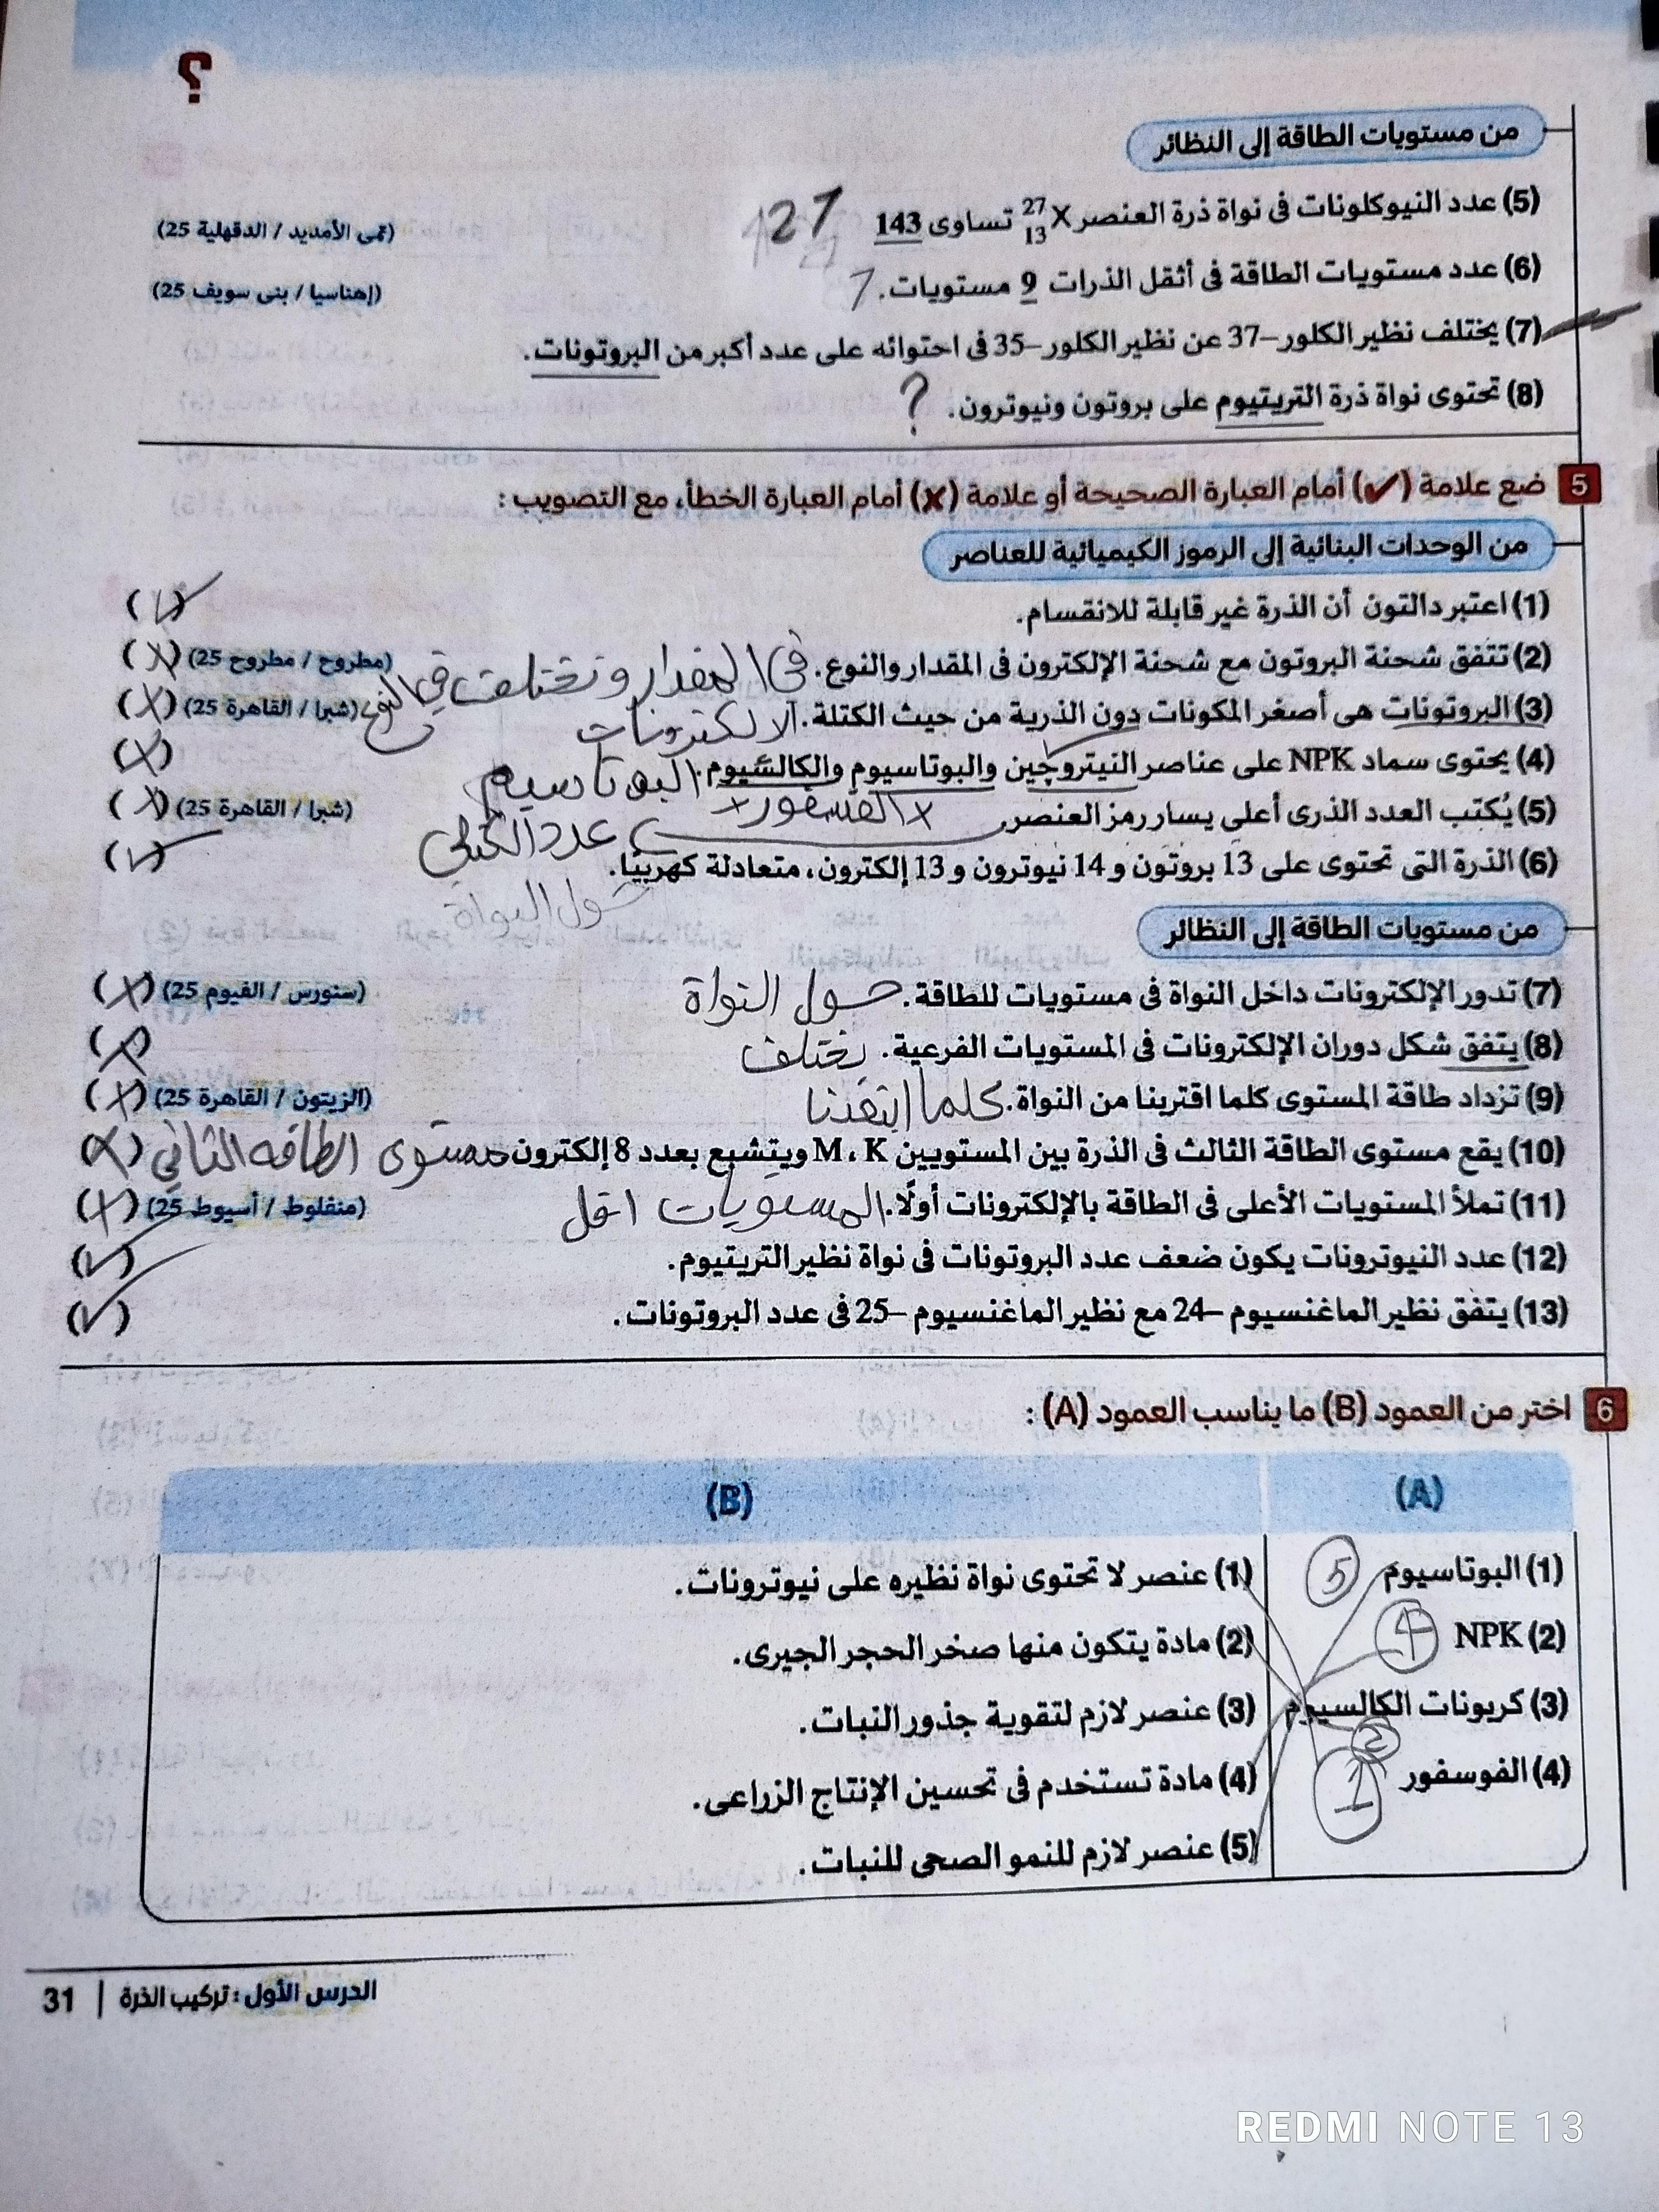 ؟
من مستويات الطاقة إلى النظائر
(5) عدد النيوكلونات فى نواة ذرة العنصر ²⁷₁₃X تساوى 143 27 (تمى الأمديد / الدقهلية 25)
(6) عدد مستويات الطاقة فى أثقل الذرات 9 مستويات. 7 (إهناسيا / بنى سويف 25)
(7) يختلف نظير الكلور–37 عن نظير الكلور–35 فى احتوائه على عدد أكبر من البروتونات.
(8) تحتوى نواة ذرة التريتيوم على بروتون ونيوترون. ?
5 ضع علامة (✓) أمام العبارة الصحيحة أو علامة (✗) أمام العبارة الخطأ، مع التصويب :
من الوحدات البنائية إلى الرموز الكيميائية للعناصر
(1) اعتبر دالتون أن الذرة غير قابلة للانقسام. (✓)
(2) تتفق شحنة البروتون مع شحنة الإلكترون فى المقدار والنوع. فى المقدار وتختلف في النوع (مطروح / مطروح 25) (X)
(3) البروتونات هى أصغر المكونات دون الذرية من حيث الكتلة. الالكترونات (شبرا / القاهرة 25) (X)
(4) يحتوى سماد NPK على عناصر النيتروچين والبوتاسيوم والكالسيوم. البوتاسيم (X)
x الفسفور x
(5) يُكتب العدد الذرى أعلى يسار رمز العنصر. عدد الكتلي (شبرا / القاهرة 25) (X)
(6) الذرة التى تحتوى على 13 بروتون و 14 نيوترون و 13 إلكترون، متعادلة كهربيًا. (✓)
حول النواة
من مستويات الطاقة إلى النظائر
(7) تدور الإلكترونات داخل النواة فى مستويات للطاقة. حول النواة (سنورس / الفيوم 25) (X)
(8) يتفق شكل دوران الإلكترونات فى المستويات الفرعية. يختلف (X)
(9) تزداد طاقة المستوى كلما اقتربنا من النواة. كلما ابتعدنا (الزيتون / القاهرة 25) (X)
(10) يقع مستوى الطاقة الثالث فى الذرة بين المستويين M ، K ويتشبع بعدد 8 إلكترون. مستوى الطاقه الثاني (X)
(11) تملأ المستويات الأعلى فى الطاقة بالإلكترونات أولًا. المستويات اقل (منفلوط / أسيوط 25) (X)
(12) عدد النيوترونات يكون ضعف عدد البروتونات فى نواة نظير التريتيوم. (✓)
(13) يتفق نظير الماغنسيوم –24 مع نظير الماغنسيوم –25 فى عدد البروتونات. (✓)
6 اختر من العمود (B) ما يناسب العمود (A) :
(A) (B)
(1) البوتاسيوم 5 (1) عنصر لا تحتوى نواة نظيره على نيوترونات.
(2) NPK 4 (2) مادة يتكون منها صخر الحجر الجيرى.
(3) كربونات الكالسيوم 2 (3) عنصر لازم لتقوية جذور النبات.
(4) الفوسفور 1 (4) مادة تستخدم فى تحسين الإنتاج الزراعى.
(5) عنصر لازم للنمو الصحى للنبات.
الدرس الأول : تركيب الذرة | 31
REDMI NOTE 13